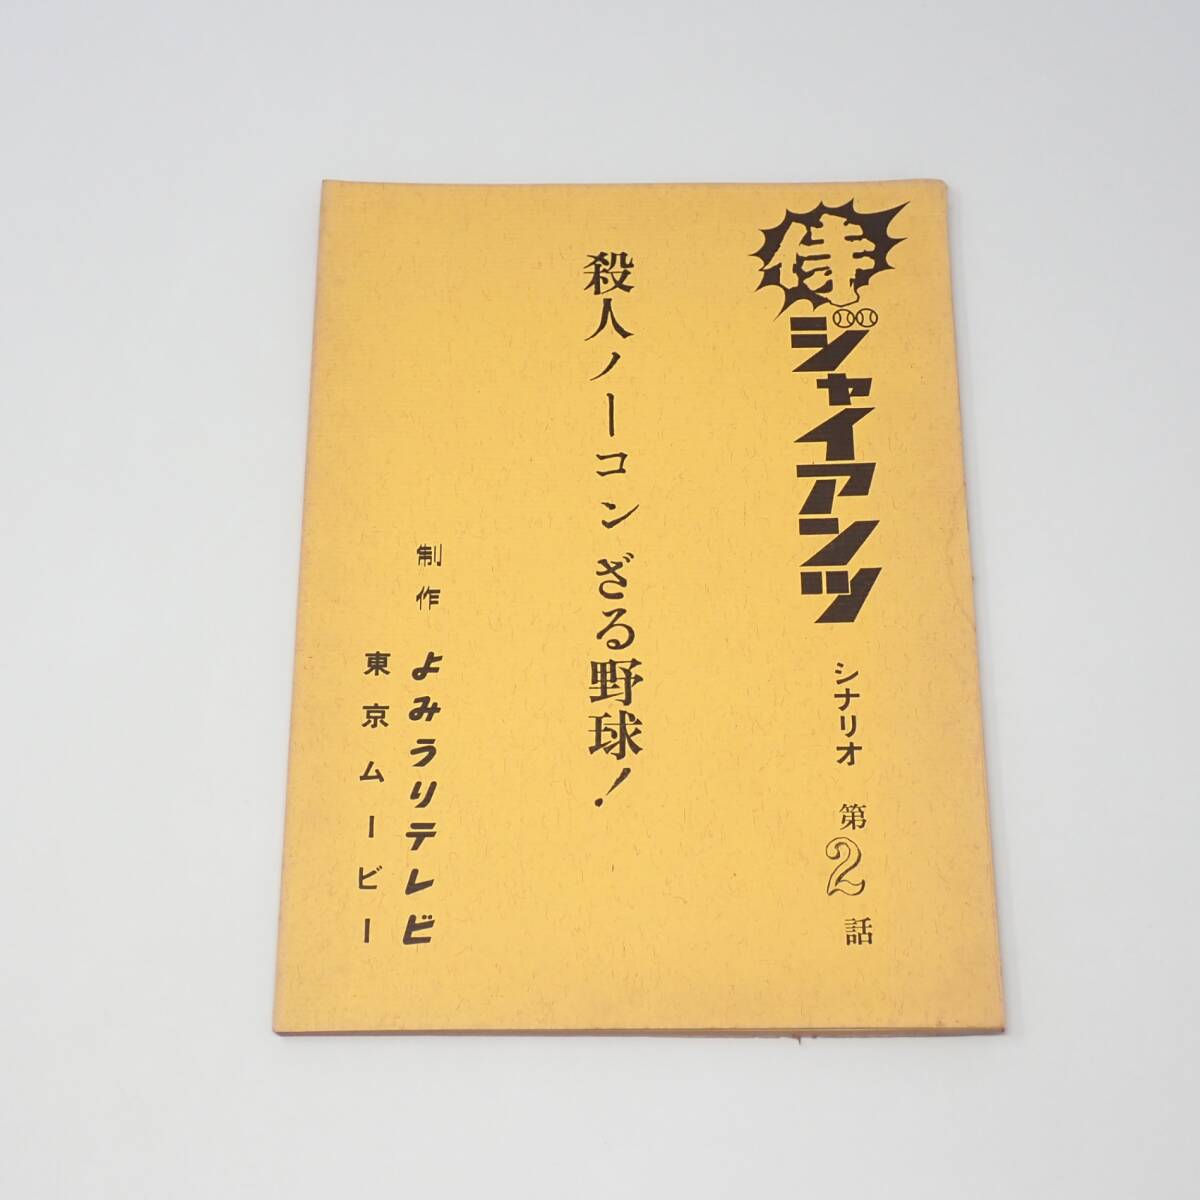 侍ジャイアンツ
シナリオ 第2話
殺人ノーコン ざる野球!
制作 よみうりテレビ
東京ムービー